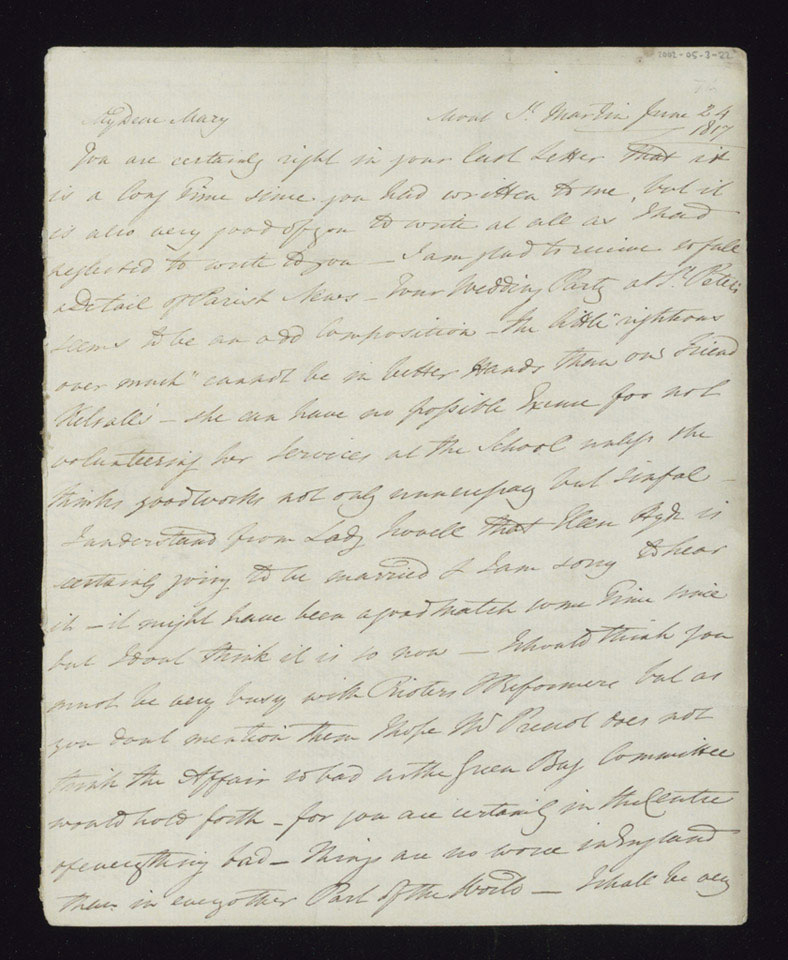 2002-05-3-22
My Dear Mary
Mont St. Martin June 24
1817
You are certainly right in your last Letter that it
is a long Time since you had written to me, but it
is also very good of you to write at all as I had
neglected to write to you – I am glad to receive so full
a Detail of Parish News – Your Wedding Party at St. Peter's
seems to be an odd Composition – The little "righteous
over much" cannot be in better Hands than our Friend
– she can have no possible Excuse for not
volunteering her Services at the School unless she
thinks good works not only unnecessary but sinful –
I understand from Lady that Ellen Hyde is
certainly going to be married & I am sorry to hear
it – it might have been a good match some Time since
but I dont think it is so now – I should think you
must be very busy with Rioters & Reformers but as
you dont mention them I hope Mr does not
think the Affair so bad as the Green Bag Committee
would hold forth – for you are certainly in the Centre
of everything bad – Things are no worse in England
than in every other Part of the World – I shall be very